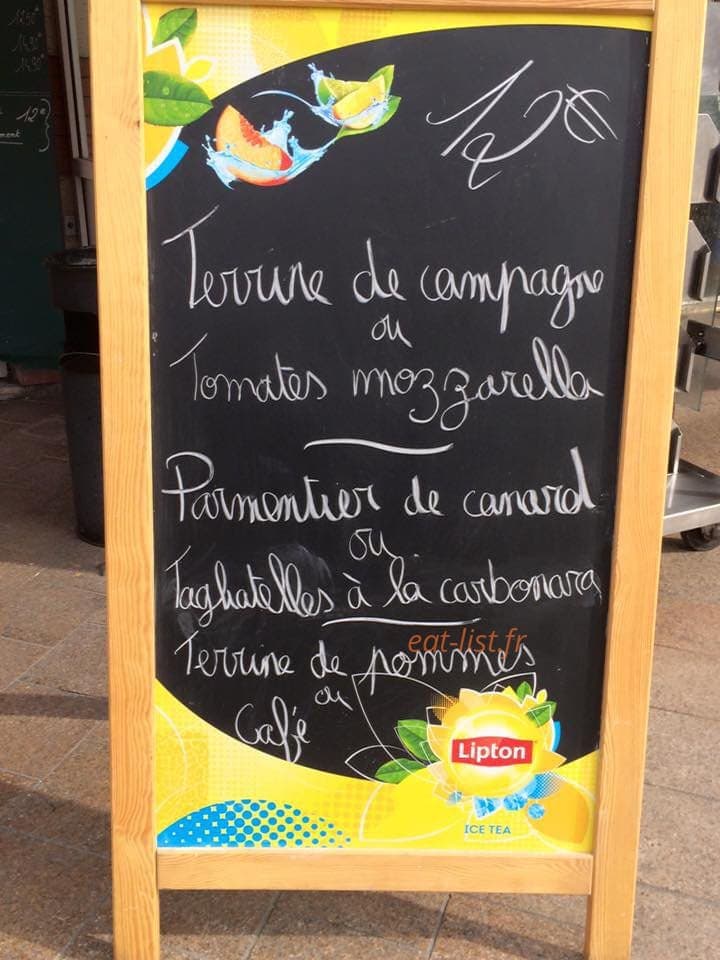 12€
Terrine de campagne
ou
Tomates mozzarella
Parmentier de canard
ou
Taghatelles à la carbonara
eat-list.fr
Terrine de pommes
ou
Café
Lipton
ICE TEA
12€